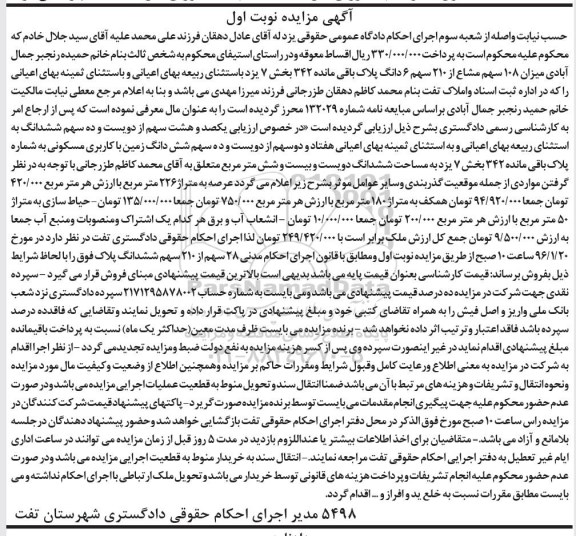 آگهی مزایده نوبت اول
حسب نیابت واصله از شعبه سوم اجرای احکام دادگاه عمومی حقوقی یزد له آقای عادل دهقان فرزند علی محمد علیه آقای سید جلال خادم که
محکوم علیه محکوم است به پرداخت ۳۳۰/۰۰۰/۰۰۰ ریال اقساط معوقه ودر راستای استیفای محکوم به شخص ثالث بنام خانم حمیده رنجبر جمال
آبادی میزان ۱۰۸ سهم مشاع از ۲۱۰ سهم ۶ دانگ پلاک باقی مانده ۳۴۲ بخش ۷ یزد باستثنای ربیعه بهای اعیانی و باستثنای ثمینه بهای اعیانی
را که در اداره ثبت اسناد واملاک تفت بنام محمد کاظم دهقان طزرجانی فرزند میرزا مهدی می باشد و بنا به اعلام مرجع معطی نیابت مالکیت
خانم حمید رنجبر جمال آبادی براساس مبایعه نامه شماره ۱۳۲۰۲۹ محرز گردیده است را به عنوان مال معرفی نموده است که پس از ارجاع امر
به کارشناسی رسمی دادگستری بشرح ذیل ارزیابی گردیده است «در خصوص ارزیابی یکصد و هشت سهم از دویست و ده سهم ششدانگ به
استثنای ربیعه بهای اعیانی و به استثنای ثمینه بهای اعیانی هفتاد و دوسهم از دویست و ده سهم شش دانگ زمین با کاربری مسکونی به شماره
پلاک باقی مانده ۳۴۲ بخش ۷ یزد به مساحت ششدانگ دویست و بیست و شش متر مربع متعلق به آقای محمد کاظم طزرجانی با توجه به در نظر
گرفتن مواردی از جمله موقعیت گذربندی وسایر عوامل موثر بشرح زیر اعلام می گردد عرصه به متراژ ۲۲۶ متر مربع با ارزش هر متر مربع ۴۲۰/۰۰۰
تومان جمعا ۹۴/۹۲۰/۰۰۰ تومان همکف به متراژ ۱۸۰ متر مربع با ارزش هر متر مربع ۷۵۰/۰۰۰ تومان جمعا ۱۳۵/۰۰۰/۰۰۰ تومان - حیاط سازی به متراژ
۵۰ متر مربع با ارزش هر متر مربع ۲۰۰/۰۰۰ تومان جمعا ۱۰/۰۰۰/۰۰۰ تومان - انشعاب آب و برق هر کدام یک اشتراک ومنصوبات ومنبع آب جمعا
به ارزش ۹/۵۰۰/۰۰۰ تومان جمع کل ارزش ملک برابر است با ۲۴۹/۴۲۰/۰۰۰ تومان لذا اجرای احکام حقوقی دادگستری تفت در نظر دارد در مورخ
۹۶/۱/۲۰ ساعت ۱۰ صبح از طریق مزایده نوبت اول ومطابق با قانون اجرای احکام مدنی ۲۸ سهم از ۲۱۰ سهم ششدانگ پلاک فوق را با لحاظ شرایط
ذیل بفروش برساند: قیمت کارشناسی بعنوان قیمت پایه می باشد بدیهی است بالاترین قیمت پیشنهادی مبنای فروش قرار می گیرد - سپرده
نقدی جهت شرکت در مزایده ده درصد قیمت پیشنهادی می باشد ومی بایست به شماره حساب ۲۱۷۱۲۹۵۸۷۸۰۰۲ سپرده دادگستری نزد شعب
بانک ملی واریز و اصل فیش را به همراه تقاضای کتبی خود و مبلغ پیشنهادی در پاکت قرار داده و تحویل نمایند وتقاضایی که فاقدده درصد
سپرده باشد فاقد اعتبار و ترتیب اثر داده نخواهد شد - برنده مزایده می بایست ظرف مدت معین (حداکثر یک ماه) نسبت به پرداخت باقیمانده
مبلغ پیشنهادی اقدام نماید در غیر اینصورت سپرده وی پس از کسر هزینه مزایده به نفع دولت ضبط ومزایده تجدیدمی گردد - از نظر اجرا اقدام
به شرکت در مزایده به معنی اطلاع ورعایت کامل وقبول شرایط ومقررات حاکم بر مزایده وهمچنین اطلاع از وضعیت وکیفیت مال مورد مزایده
ونحوه انتقال و تشریفات و هزینه های مرتبط با آن می باشد ضمنا انتقال سند و تحویل منوط به قطعیت عملیات اجرایی مزایده می باشد ودر صورت
عدم حضور محکوم علیه جهت پیگیری انجام مقدمات می بایست توسط برنده مزایده صورت گیرد - پاکتهای پیشنهاد قیمت شرکت کنندگان در
مزایده راس ساعت ۱۰ صبح مورخ فوق الذکر در محل دفتر اجرای احکام حقوقی تفت بازگشایی خواهد شد وحضور پیشنهاد دهندگان در جلسه
بلامانع و آزاد می باشد. - متقاضیان برای اخذ اطلاعات بیشتر یا عنداللزوم بازدید در مدت ۵ روز قبل از زمان مزایده می توانند در ساعت اداری
ایام غیر تعطیل به دفتر اجرایی احکام حقوقی تفت مراجعه نمایند. - انتقال سند به خریدار منوط به قطعیت اجرایی مزایده می باشد ودر صورت
عدم حضور محکوم علیه انجام تشریفات و پرداخت هزینه های قانونی توسط خریدار می باشد و تحویل ملک ارتباطی با اجرای احکام نداشته و می
بایست مطابق مقررات نسبت به خلع ید و افراز و ... اقدام گردد.
۵۴۹۸ مدیر اجرای احکام حقوقی دادگستری شهرستان تفت